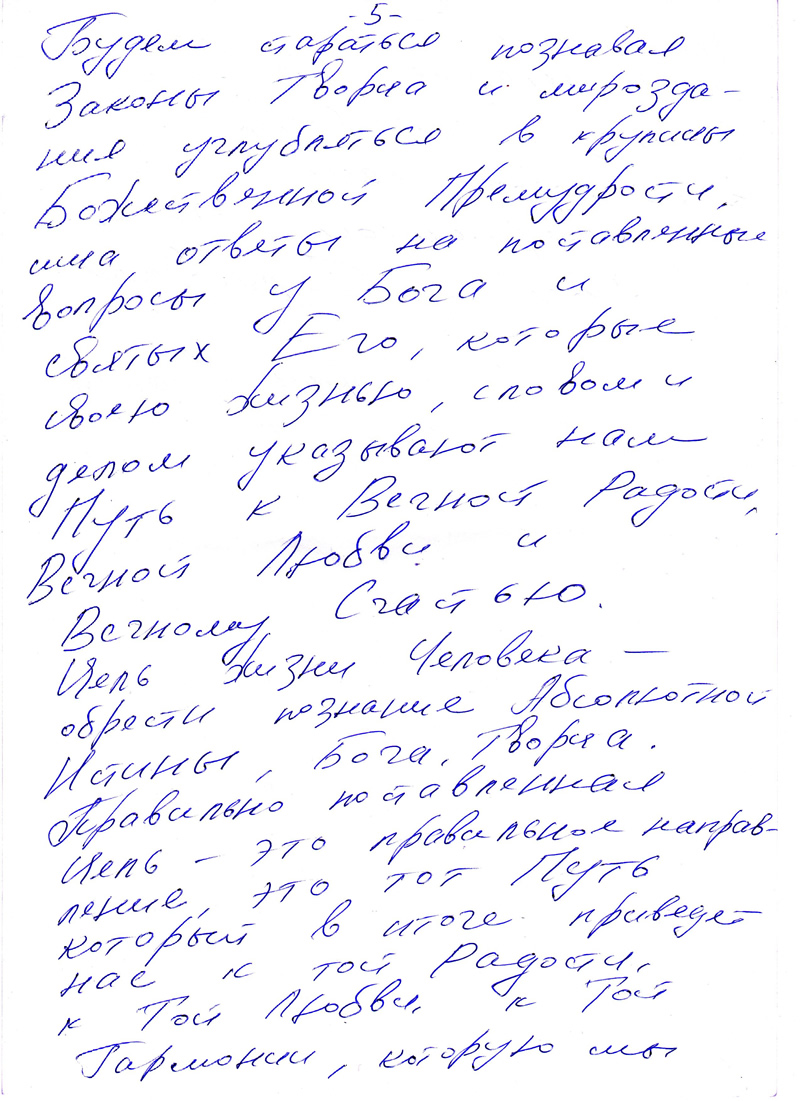 -5-
Будем стараться познавая
Законы Творца и мирозда-
ния углубляться в крупицы
Божественной Премудрости,
ища ответы на поставленные
вопросы у Бога и
святых Его, которые
своею жизнью, словом и
делом указывают нам
Путь к Вечной Радости,
Вечной Любви и
Вечному Счастью.
Цель жизни Человека —
обрести познание Абсолютной
Истины, Бога, Творца.
Правильно поставленная
Цель - это правильное направ-
ление, это тот Путь
который в итоге приведет
нас к той Радости,
к Той Любви, к Той
Гармонии, которую мы